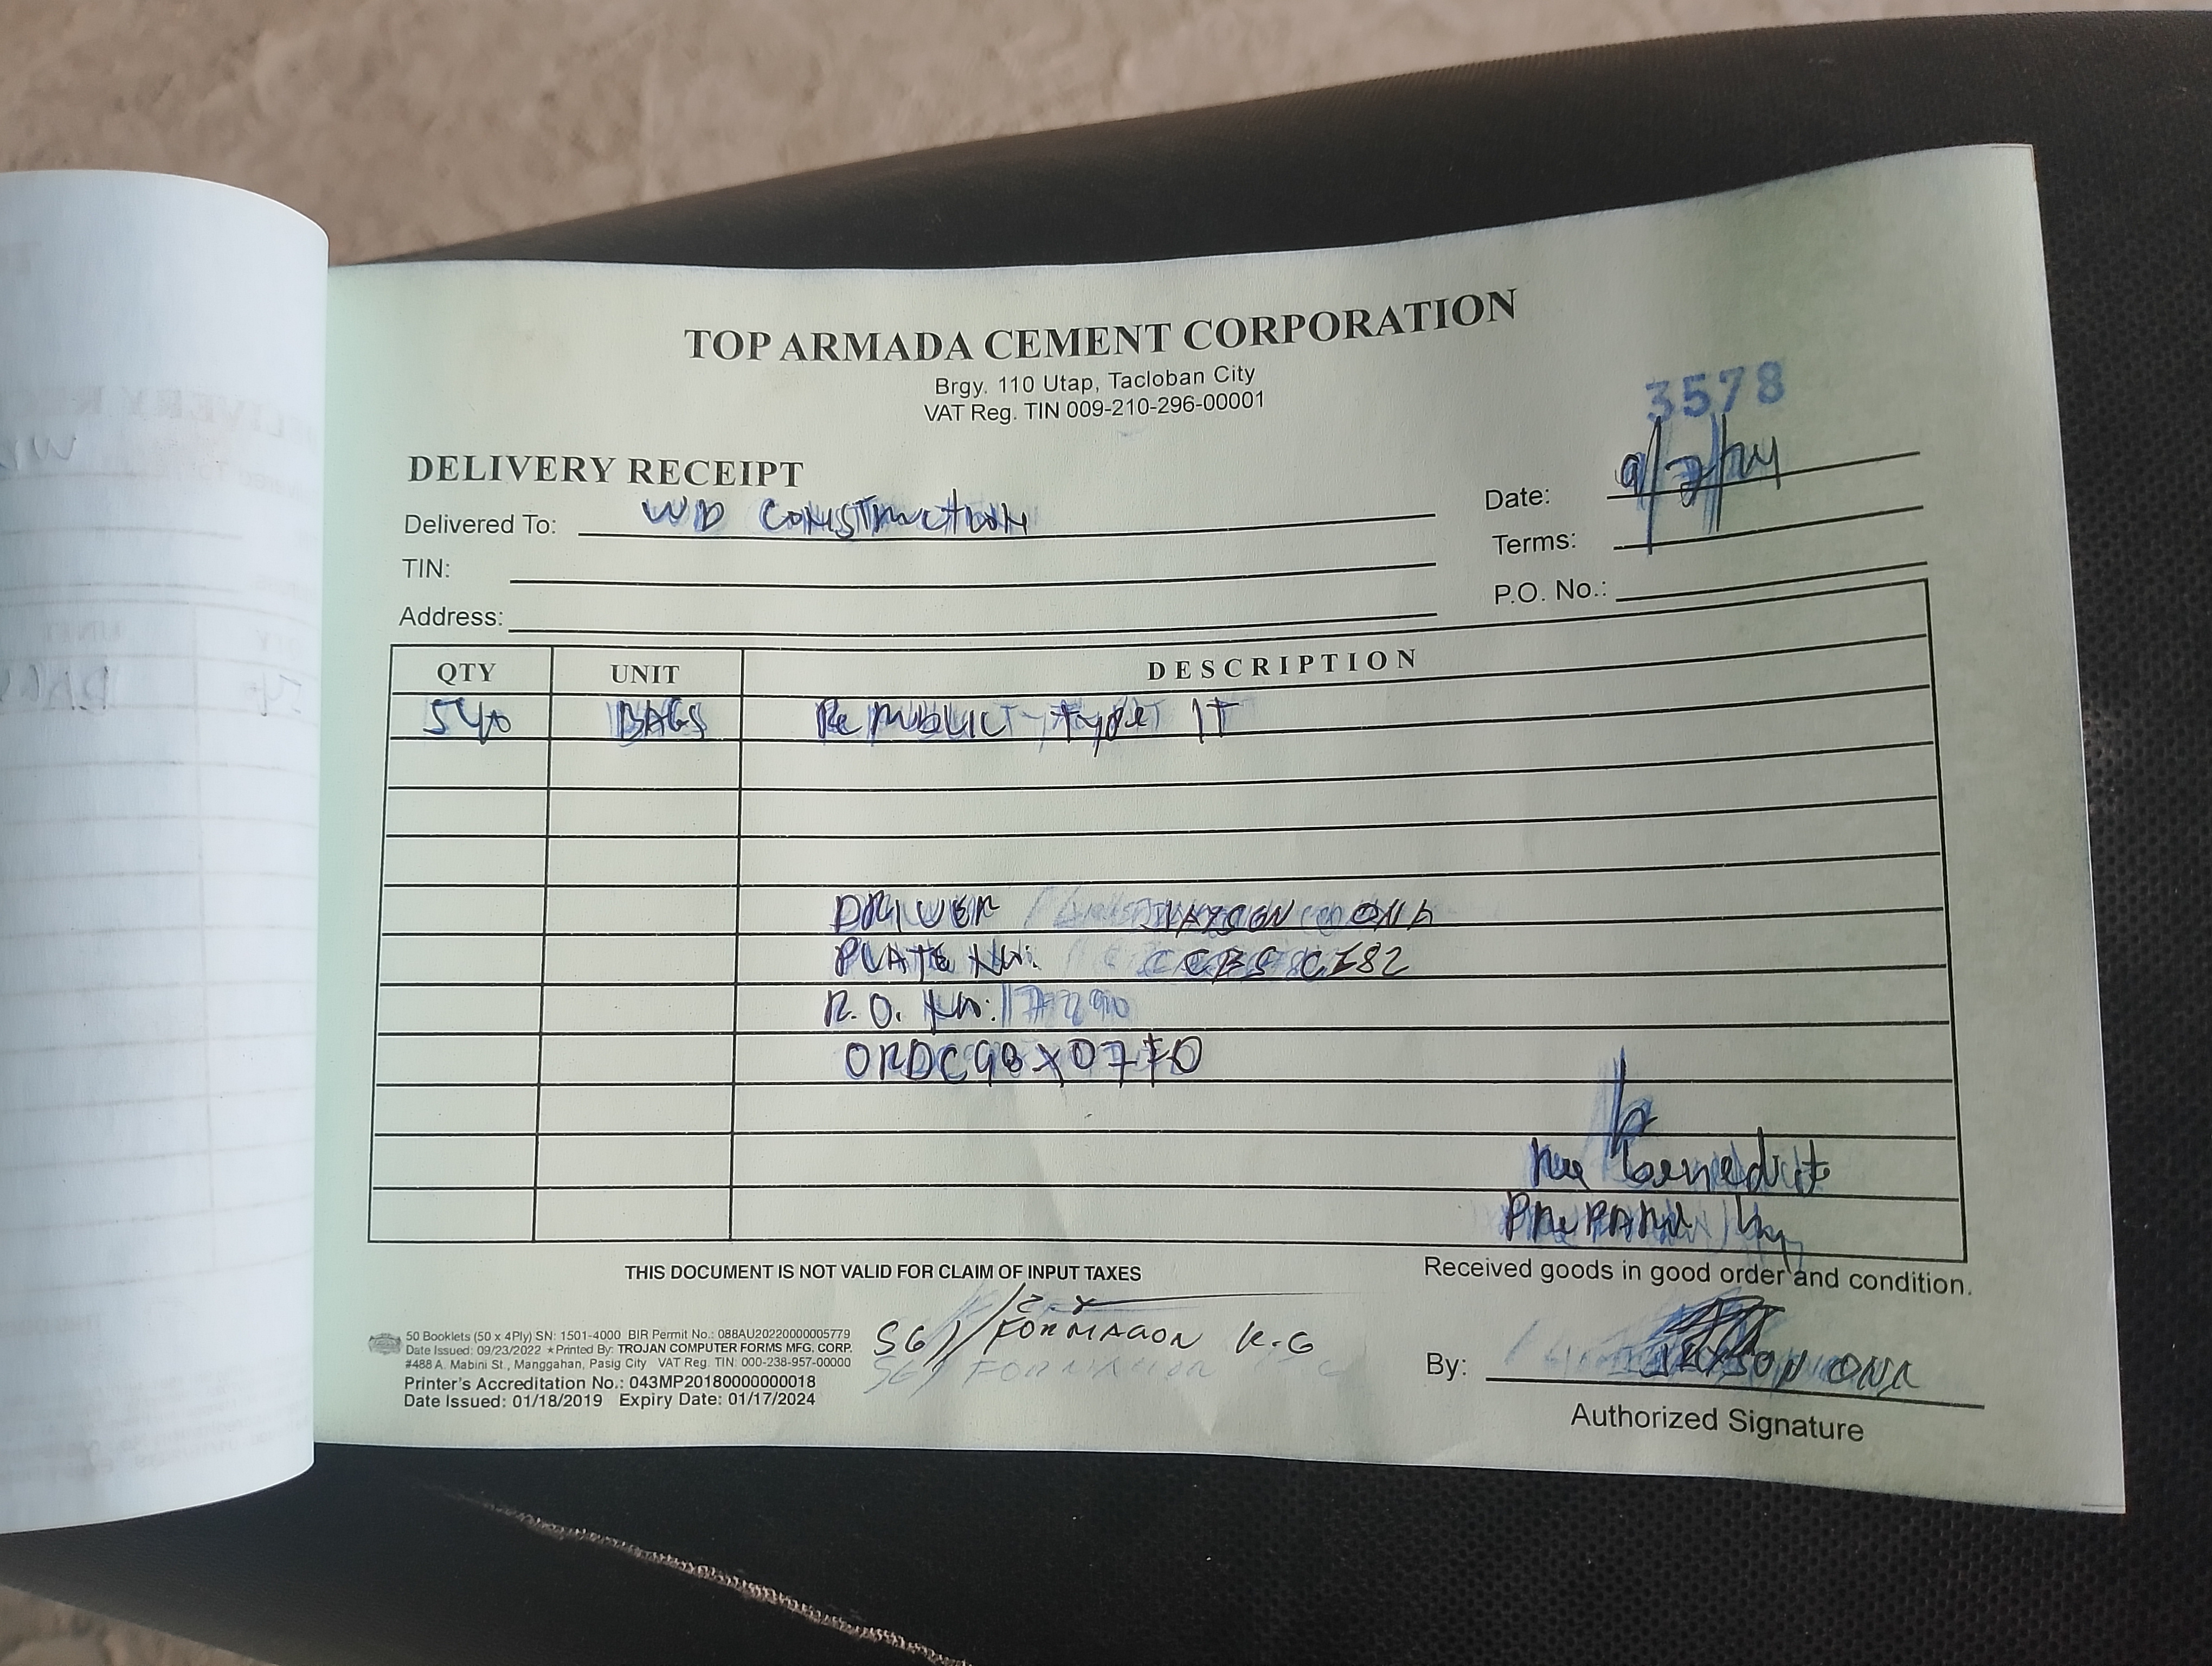 TOP ARMADA CEMENT CORPORATION
Brgy. 110 Utap, Tacloban City
VAT Reg. TIN 009-210-296-00001
3578
DELIVERY RECEIPT
Date: 9/7/24
Delivered To: WD CONSTRUCTION
Terms:
TIN:
P.O. No.:
Address:
QTY UNIT DESCRIPTION
540 BAGS Republic type IT
DRIVER JAYSON ONA
PLATE No:
R.O. No:
benedict
Prepared by
THIS DOCUMENT IS NOT VALID FOR CLAIM OF INPUT TAXES
Received goods in good order and condition.
SG / FORMACON K.G
50 Booklets (50 x 4Ply) SN: 1501-4000 BIR Permit No.: 088AU20220000005779
Date Issued: 09/23/2022 ★Printed By: TROJAN COMPUTER FORMS MFG, CORP.
#488 A. Mabini St., Manggahan, Pasig City VAT Reg. TIN: 000-238-957-00000
Printer's Accreditation No.: 043MP20180000000018
Date Issued: 01/18/2019 Expiry Date: 01/17/2024
By: JAYSON ONA
Authorized Signature